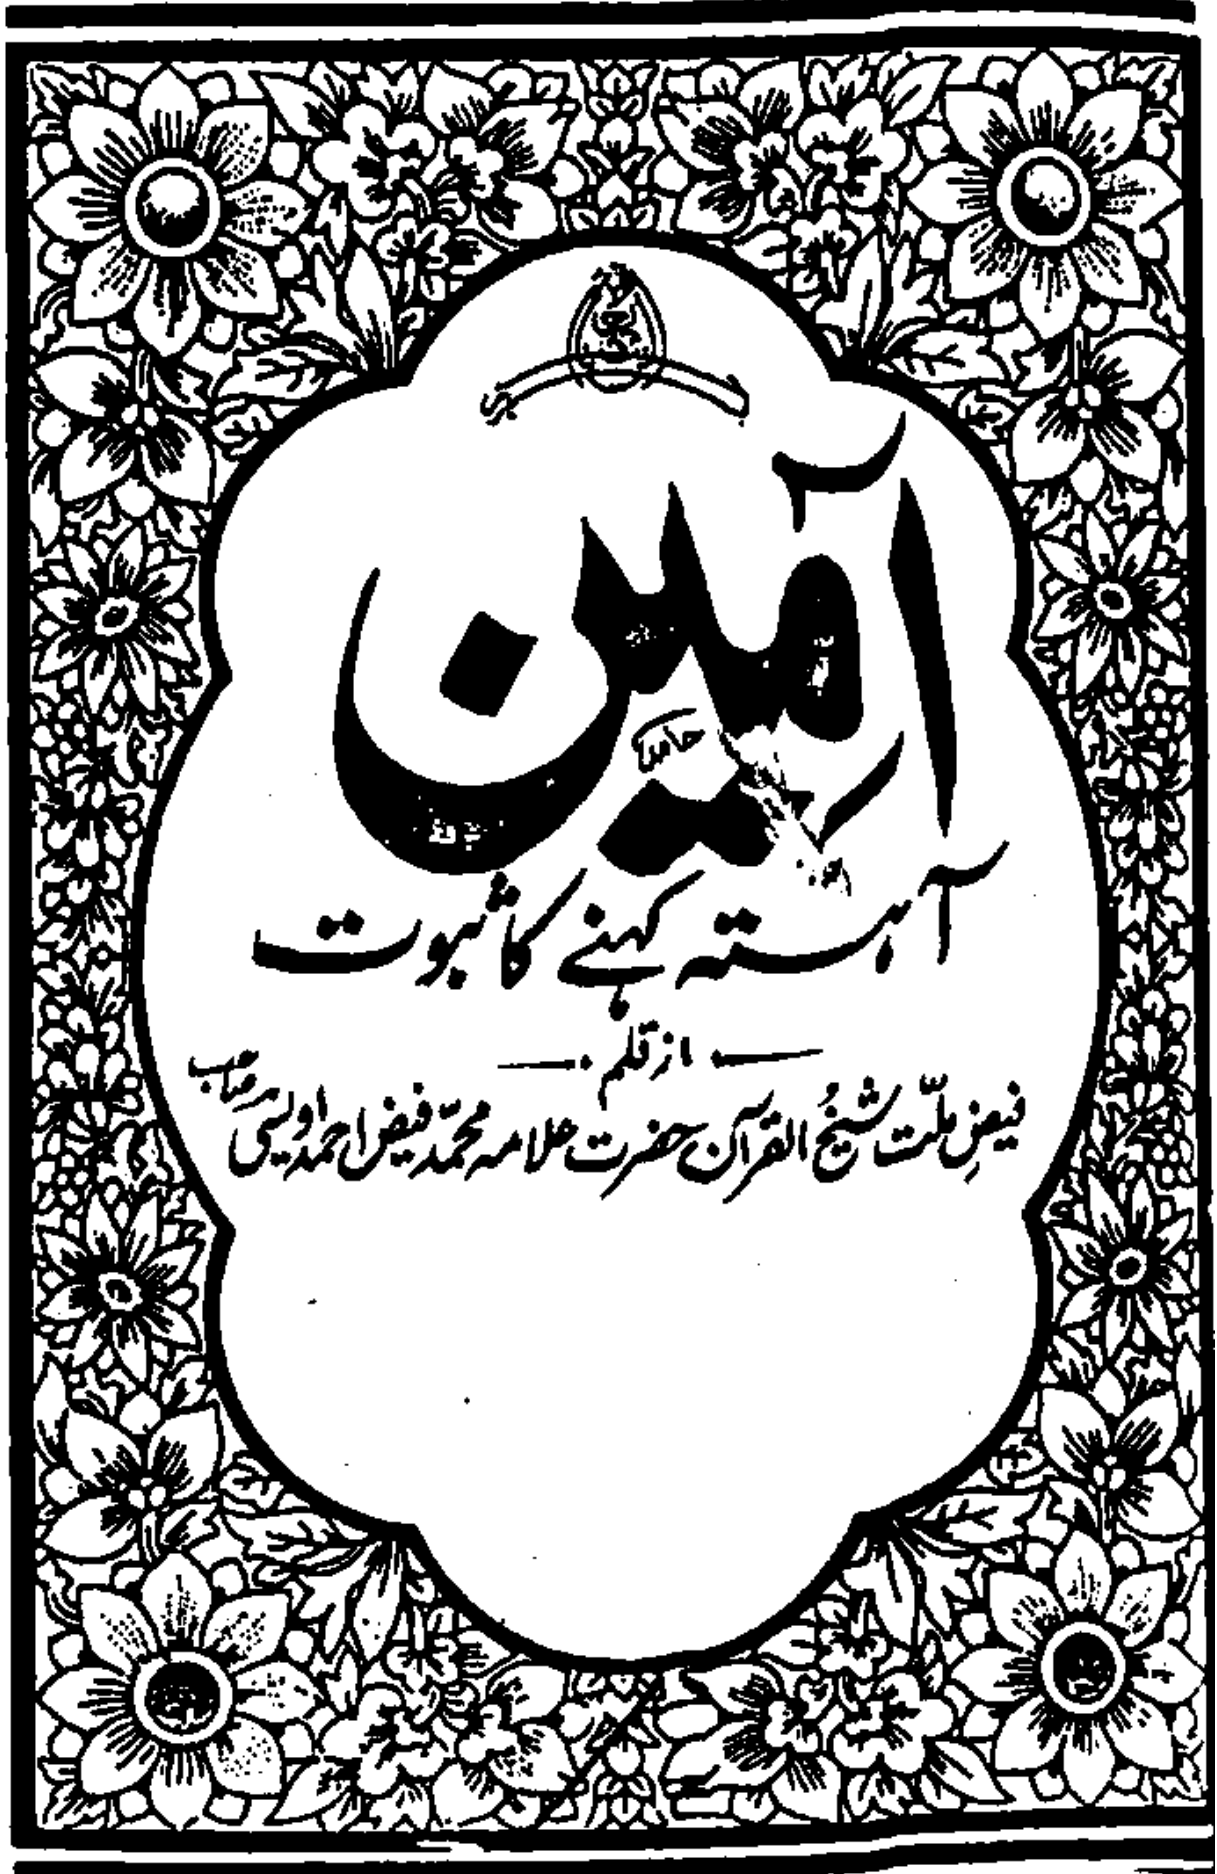 آمین
آہستہ کہنے کا ثبوت
از قلم
فیضِ ملّت شیخُ القرآن حضرت علامہ محمّد فیض احمد اویسی صاحب